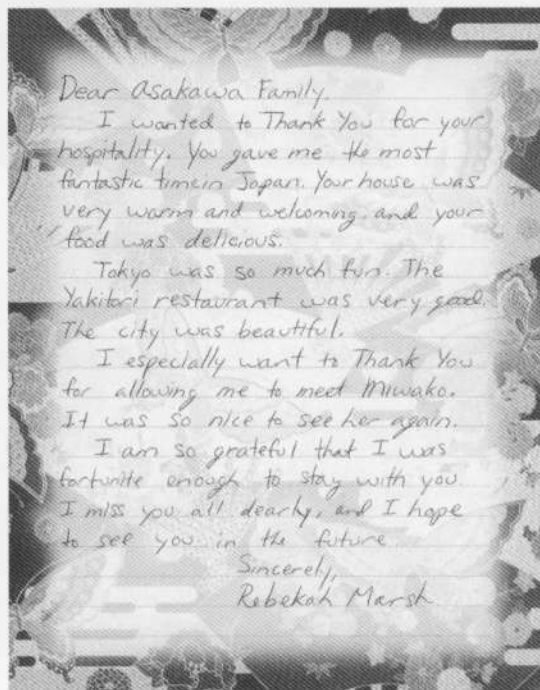 Dear Asakawa Family.
I wanted to Thank You for your
hospitality. You gave me the most
fantastic timein Japan. Your house was
very warm and welcoming, and your
food was delicious.
Tokyo was so much fun. The
Yakitori restaurant was very good.
The city was beautiful.
I especially want to Thank You
for allowing me to meet Miwako.
It was so nice to see her again.
I am so grateful that I was
fortunite enough to stay with you
I miss you all dearly, and I hope
to see you in the future
Sincerely,
Rebekah Marsh